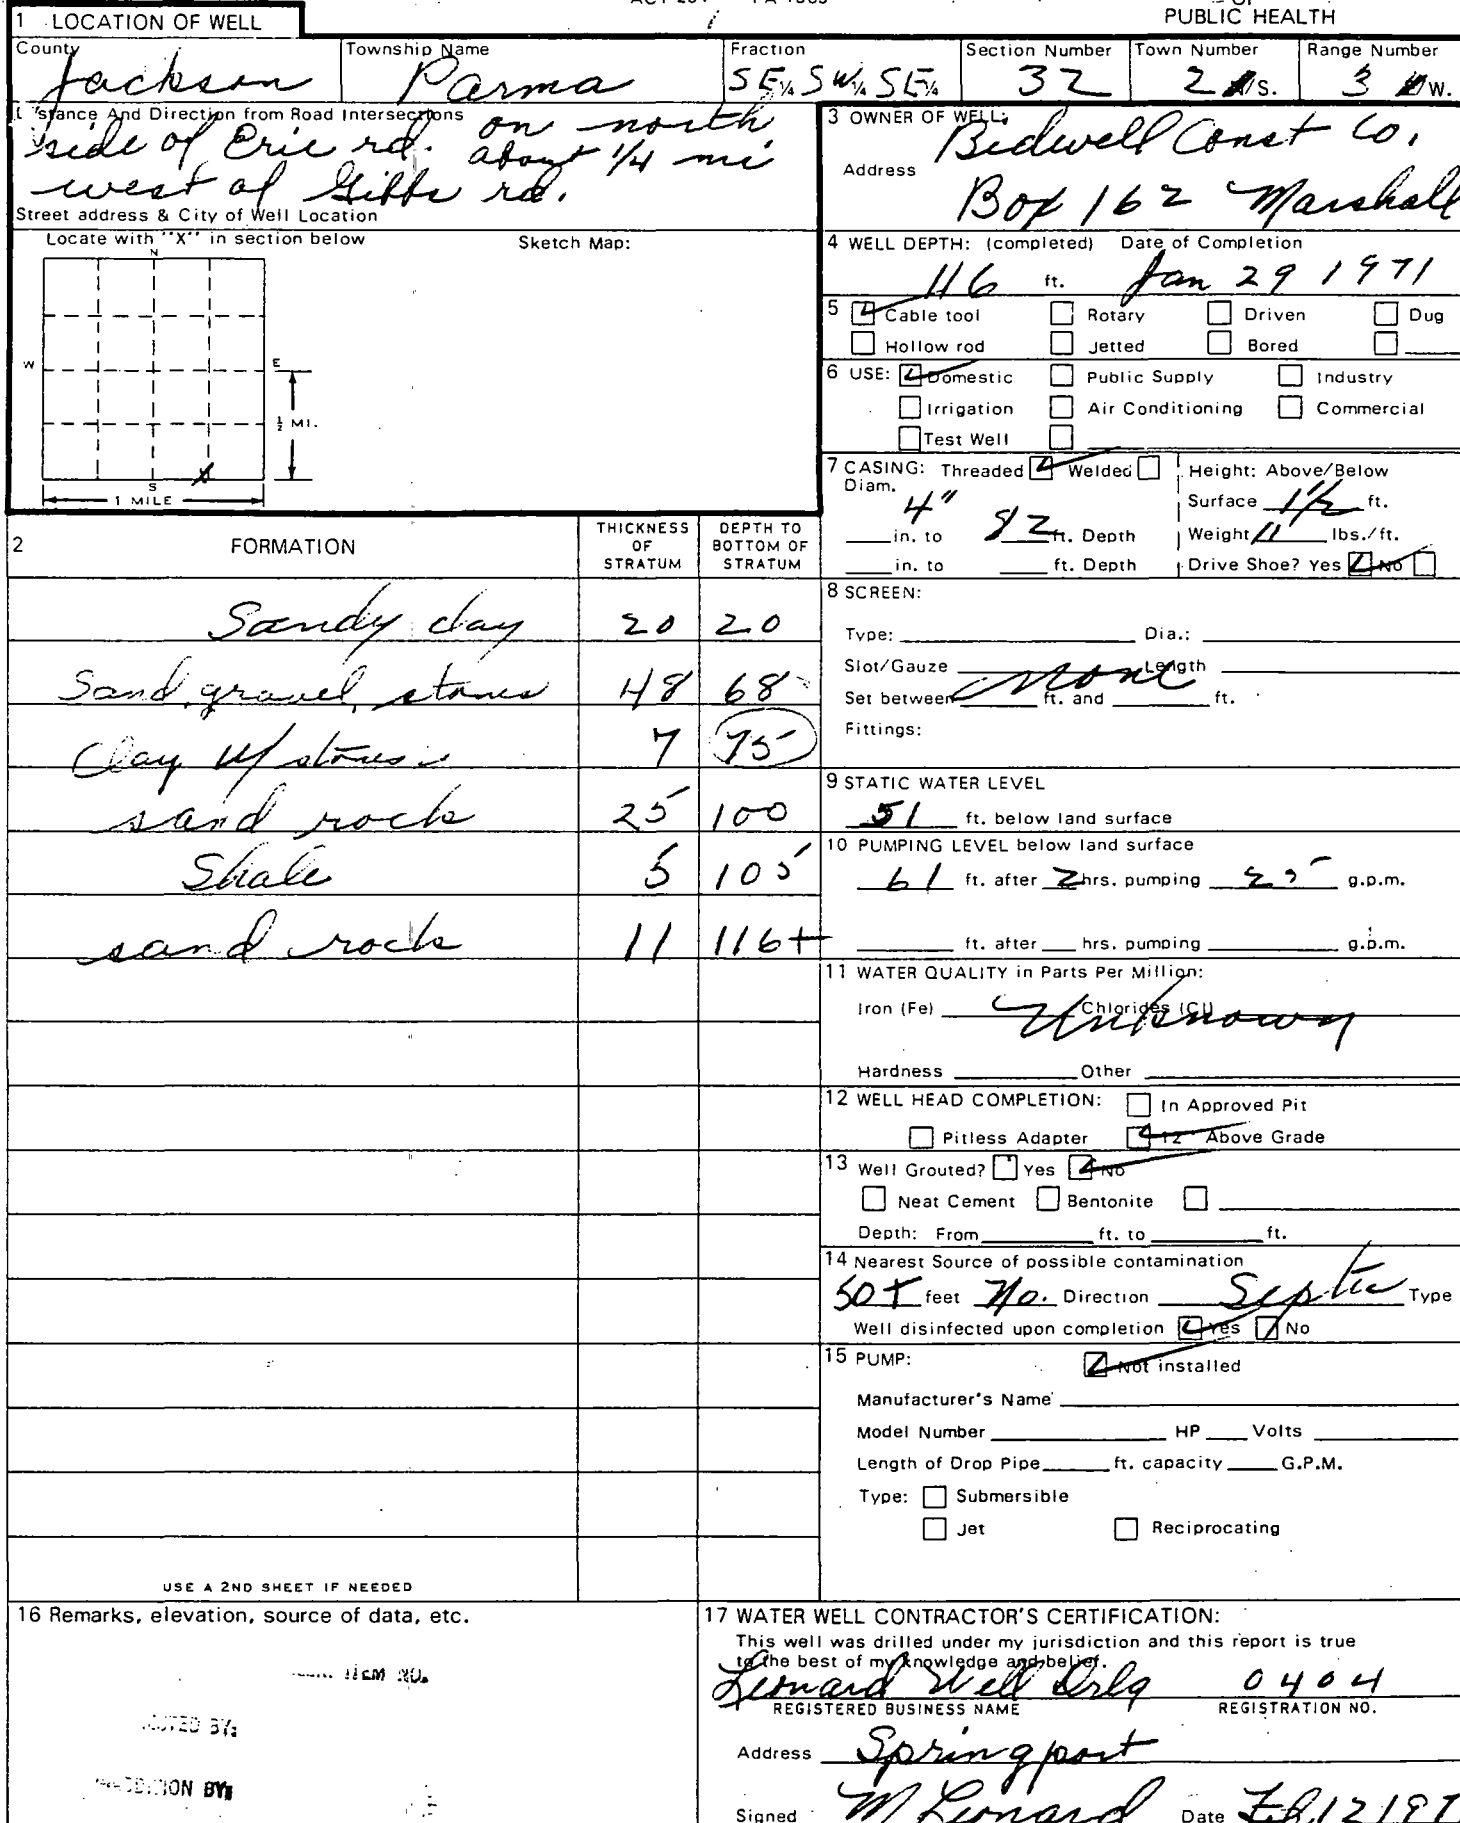 PUBLIC HEALTH
1 LOCATION OF WELL
County Township Name Fraction Section Number Town Number Range Number
Jackson Parma SE¼ SW¼ SE¼ 32 2 S. 3 W.
Distance And Direction from Road Intersections
on north
side of Erie rd. about 1/4 mi
west of Gibbs rd.
Street address & City of Well Location
Locate with "X" in section below Sketch Map:
N
W E
½ MI.
X
S
1 MILE
3 OWNER OF WELL:
Bidwell Const Co.
Address
Box 162 Marshall
4 WELL DEPTH: (completed) Date of Completion
116 ft. Jan 29 1971
5 Cable tool Rotary Driven Dug
Hollow rod Jetted Bored
6 USE: Domestic Public Supply Industry
Irrigation Air Conditioning Commercial
Test Well
7 CASING: Threaded Welded Height: Above/Below
Diam.
4" Surface 1½ ft.
in. to 82 ft. Depth Weight 11 lbs./ft.
in. to ft. Depth Drive Shoe? Yes No
2 FORMATION THICKNESS OF STRATUM DEPTH TO BOTTOM OF STRATUM
Sandy clay 20 20
Sand, gravel, stones 48 68
Clay w/ stones 7 75
sand rock 25 100
Shale 5 105
sand rock 11 116+
USE A 2ND SHEET IF NEEDED
8 SCREEN:
Type: Dia.:
Slot/Gauze Length
none
Set between ft. and ft.
Fittings:
9 STATIC WATER LEVEL
51 ft. below land surface
10 PUMPING LEVEL below land surface
61 ft. after 2 hrs. pumping 25 g.p.m.
ft. after hrs. pumping g.p.m.
11 WATER QUALITY in Parts Per Million:
Iron (Fe) Chlorides (Cl)
Unknown
Hardness Other
12 WELL HEAD COMPLETION: In Approved Pit
Pitless Adapter 12" Above Grade
13 Well Grouted? Yes No
Neat Cement Bentonite
Depth: From ft. to ft.
14 Nearest Source of possible contamination
50+ feet No. Direction Septic Type
Well disinfected upon completion Yes No
15 PUMP: Not installed
Manufacturer's Name
Model Number HP Volts
Length of Drop Pipe ft. capacity G.P.M.
Type: Submersible
Jet Reciprocating
16 Remarks, elevation, source of data, etc.
ITEM NO.
BY:
BY:
17 WATER WELL CONTRACTOR'S CERTIFICATION:
This well was drilled under my jurisdiction and this report is true
to the best of my knowledge and belief.
Leonard Well Drlg 0404
REGISTERED BUSINESS NAME REGISTRATION NO.
Address Springport
Signed M Leonard Date Feb 12 197